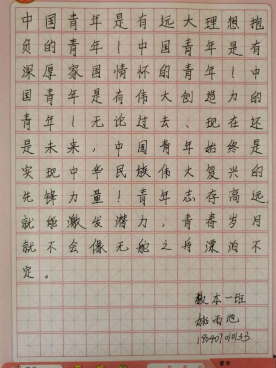 中国青年是有远大理想抱
负的青年!中国青年是有
深厚家国情怀的青年!中
国青年是有伟大创造力的
青年!无论过去、现在还
是未来,中国青年始终是
实现中华民族伟大复兴的
先锋力量!青年志存高远,
就能激发潜力,青春岁月
就不会像无舵之舟漂泊不
定。
数本一班